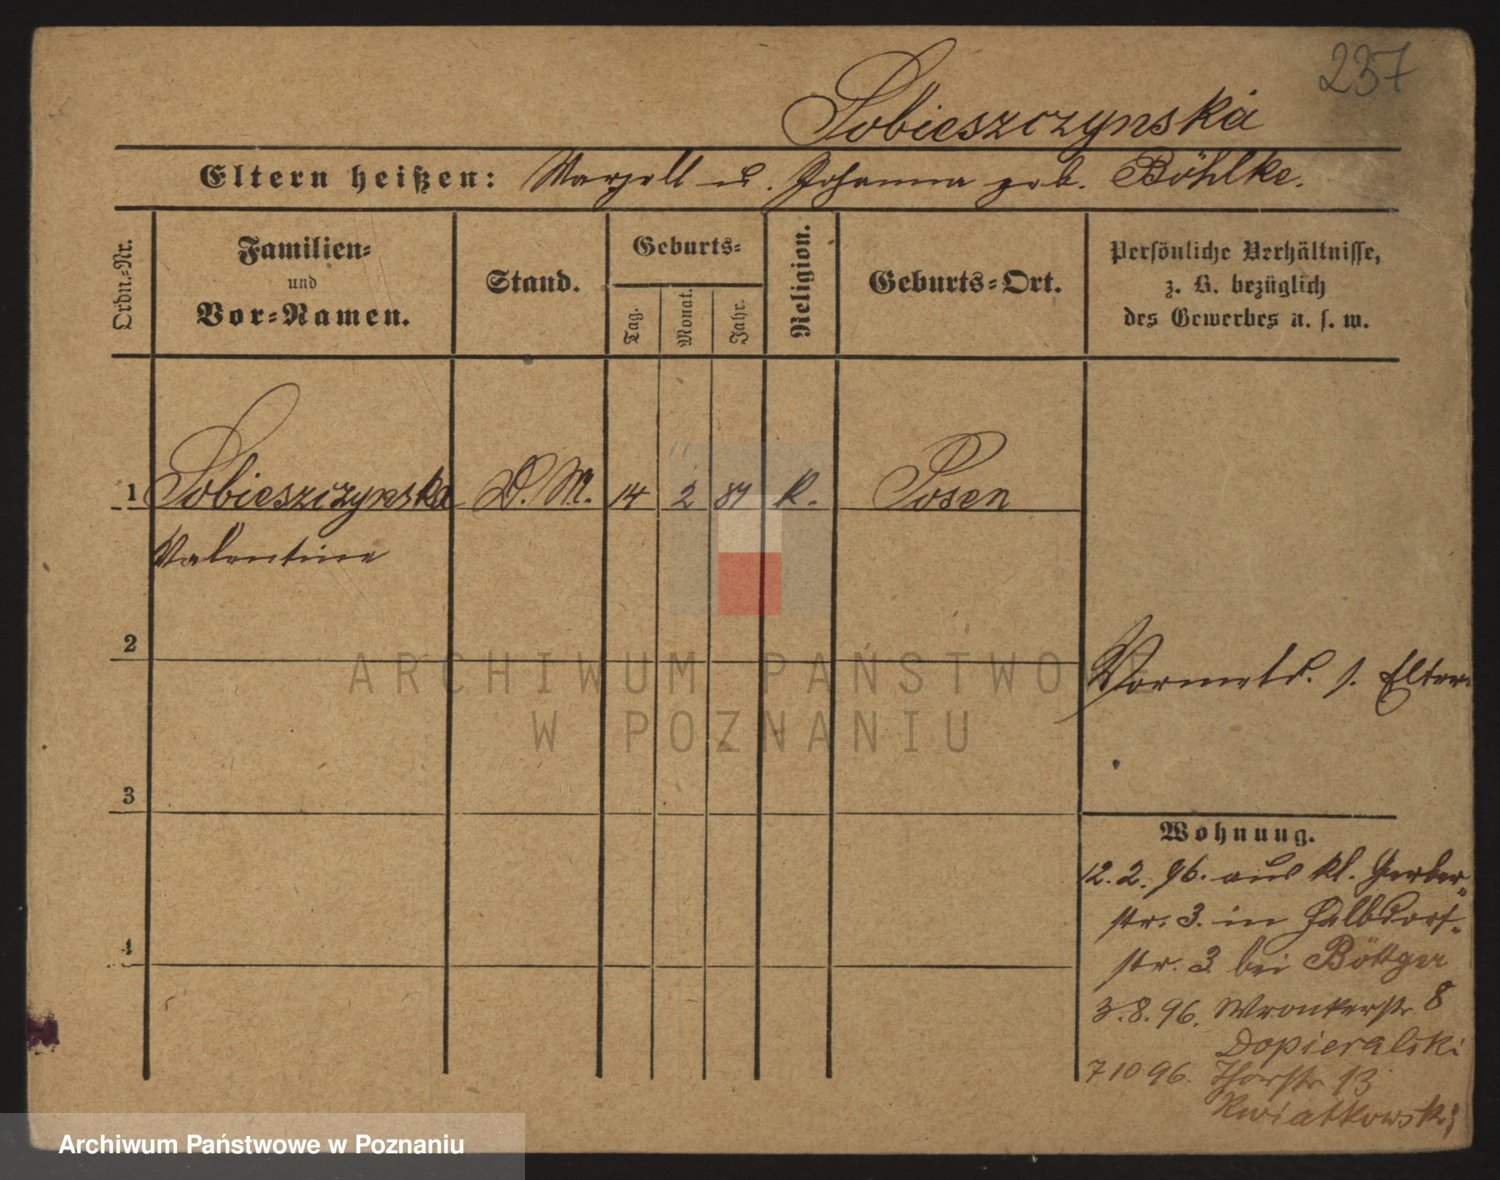 237
Sobieszczynska
Eltern heißen: Marzell u. Johanna geb. Böhlke.
Ordn.-Nr.
Familien-
und
Vor-Namen.
Stand.
Geburts-
Tag.
Monat.
Jahr.
Religion.
Geburts-Ort.
Persönliche Verhältnisse,
z. B. bezüglich
des Gewerbes u. s. w.
1 Sobieszczynska D. M. 14 2 81 K. Posen
Valentine
2
Vormeld. s. Eltern
3
Wohnung.
12. 2. 96. aus kl. Gerber-
str. 3. in Halbdorf-
str. 3 bei Böttger
4
3. 8. 96. Wronkerstr 8
Dopieralski
7 10 96. Thorstr 13
Kwiatkowski
ARCHIWUM PAŃSTWOWE
W POZNANIU
Archiwum Państwowe w Poznaniu